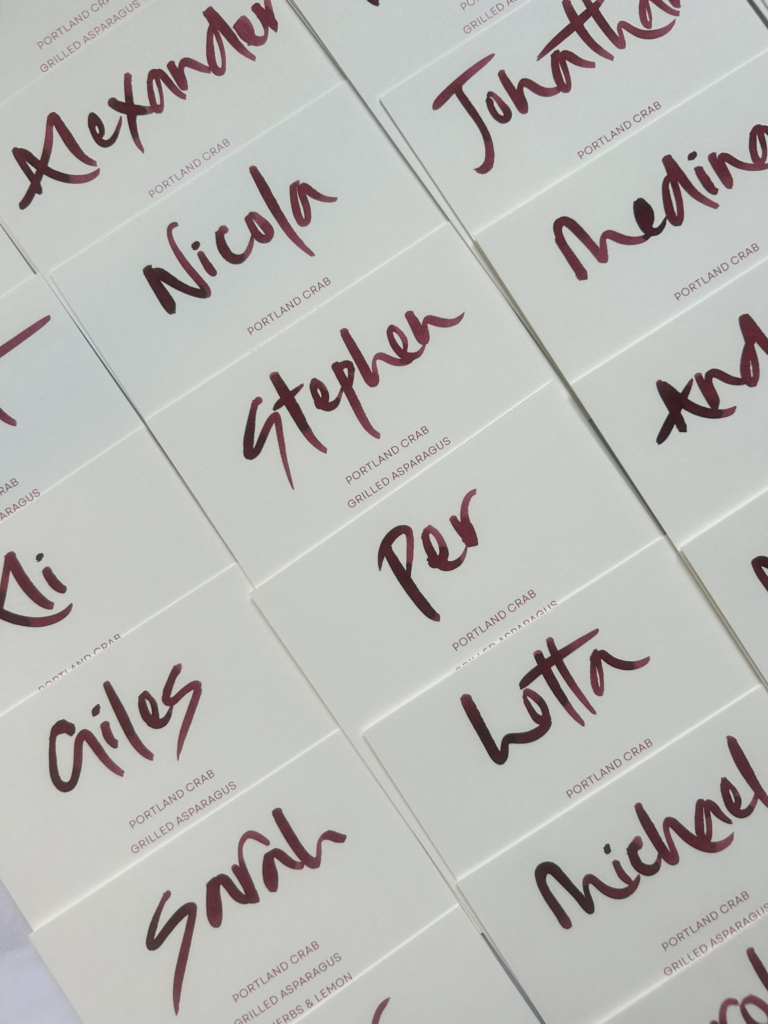 PORTLAND CRAB
GRILLED ASPARAGUS
Alexander
PORTLAND CRAB
Nicola
PORTLAND CRAB
Stephen
PORTLAND CRAB
GRILLED ASPARAGUS
Per
PORTLAND CRAB
GRILLED ASPARAGUS
Lotta
PORTLAND CRAB
Michael
PORTLAND CRAB
GRILLED ASPARAGUS
Jonathan
PORTLAND CRAB
Medina
PORTLAND CRAB
And
CRAB
ASPARAGUS
PORTLAND CRAB
Giles
PORTLAND CRAB
GRILLED ASPARAGUS
Sarah
PORTLAND CRAB
GRILLED ASPARAGUS
HERBS & LEMON